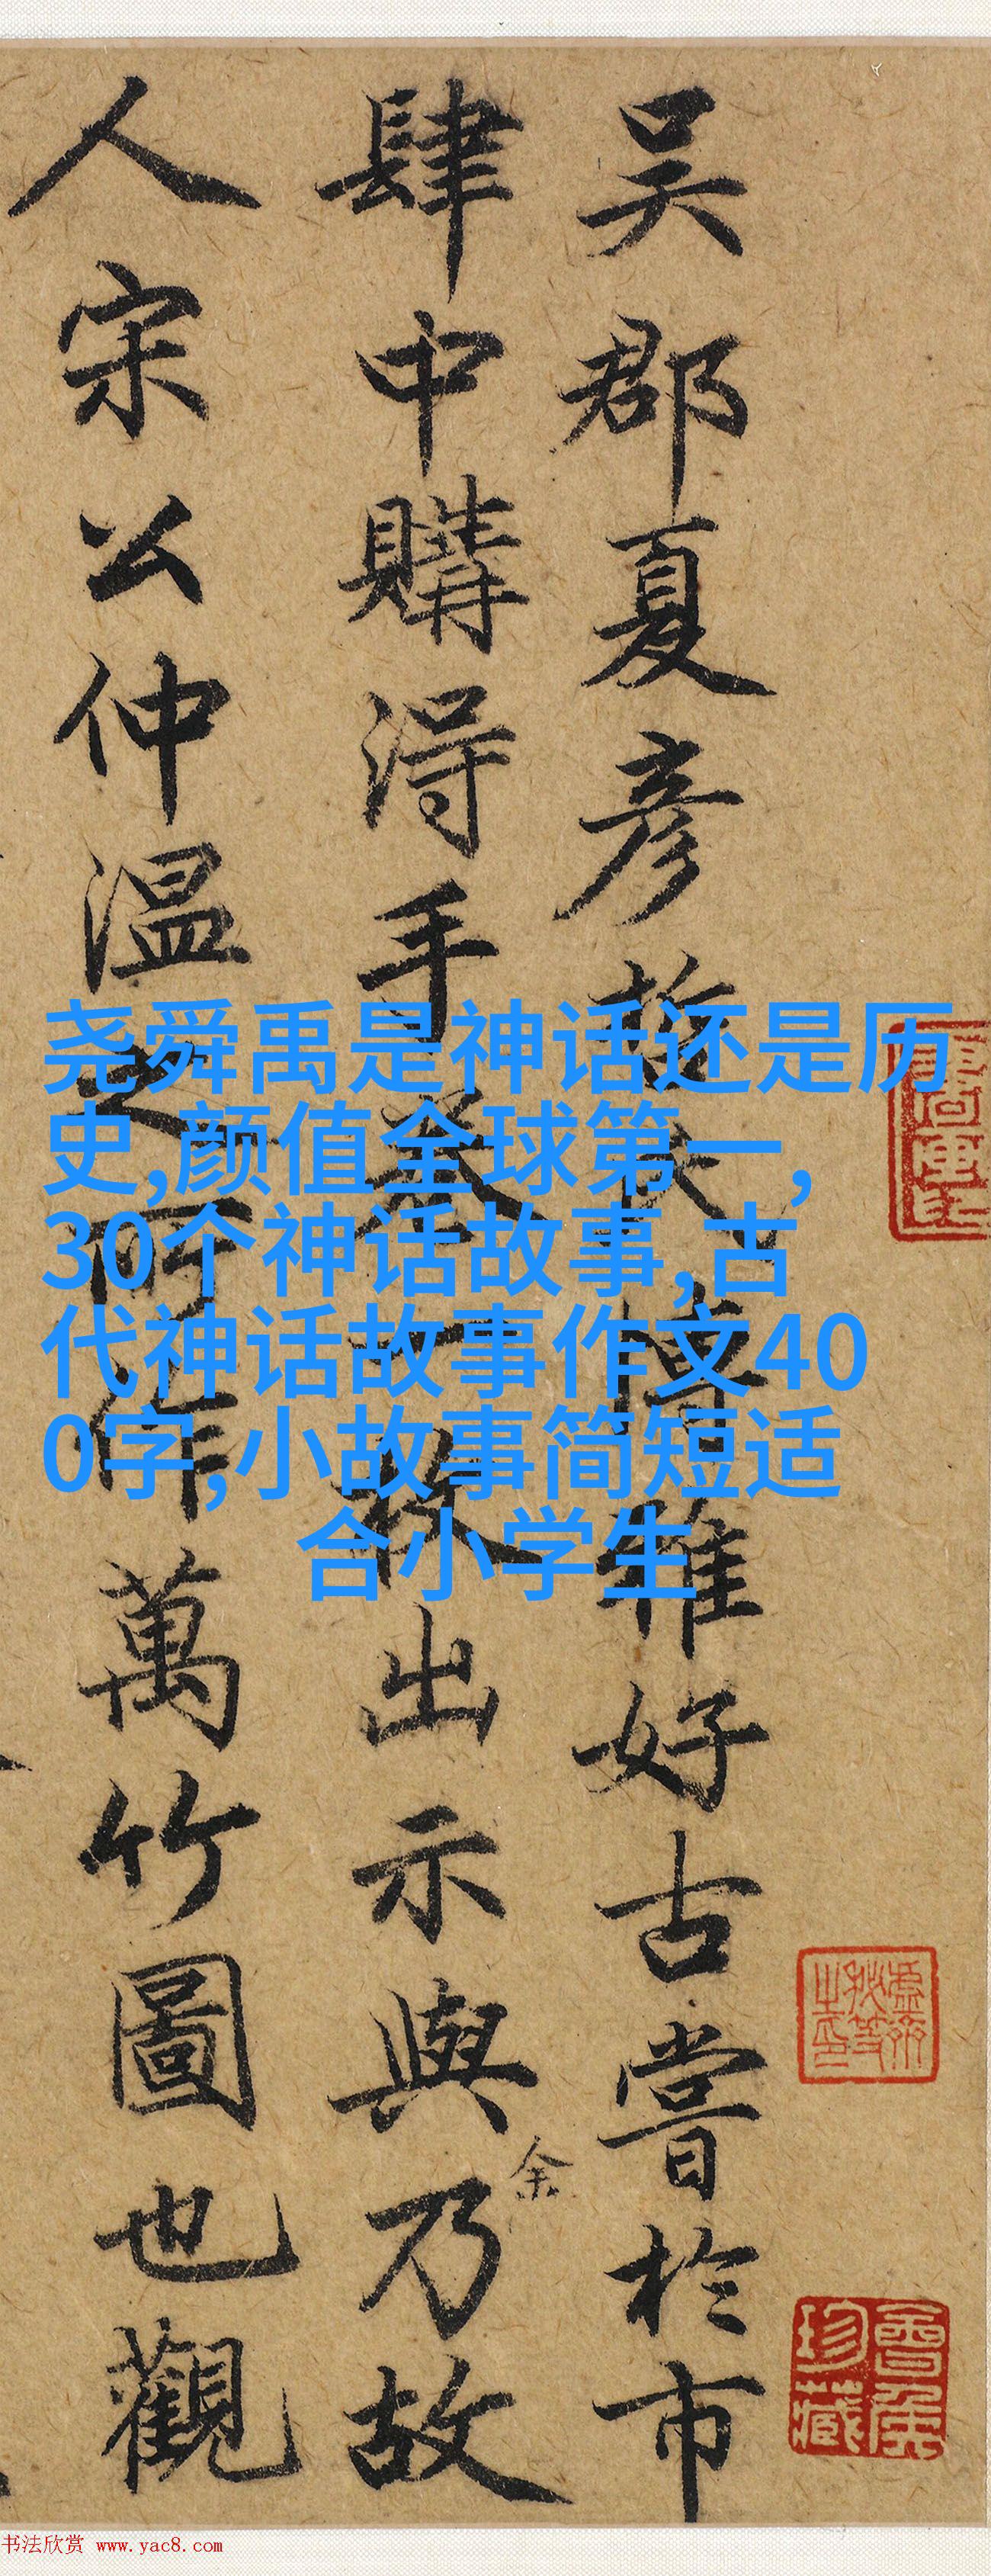 吴郡夏彦博雅好古嘗於市
肆中購得手卷一出示與余乃故
人宋公仲溫之所作萬竹圖也觀
尧舜禹是神话还是历
史,颜值全球第一,
30个神话故事,古
代神话故事作文40
0字,小故事简短适
合小学生
會侯珍藏
书法欣赏 www.yac8.com